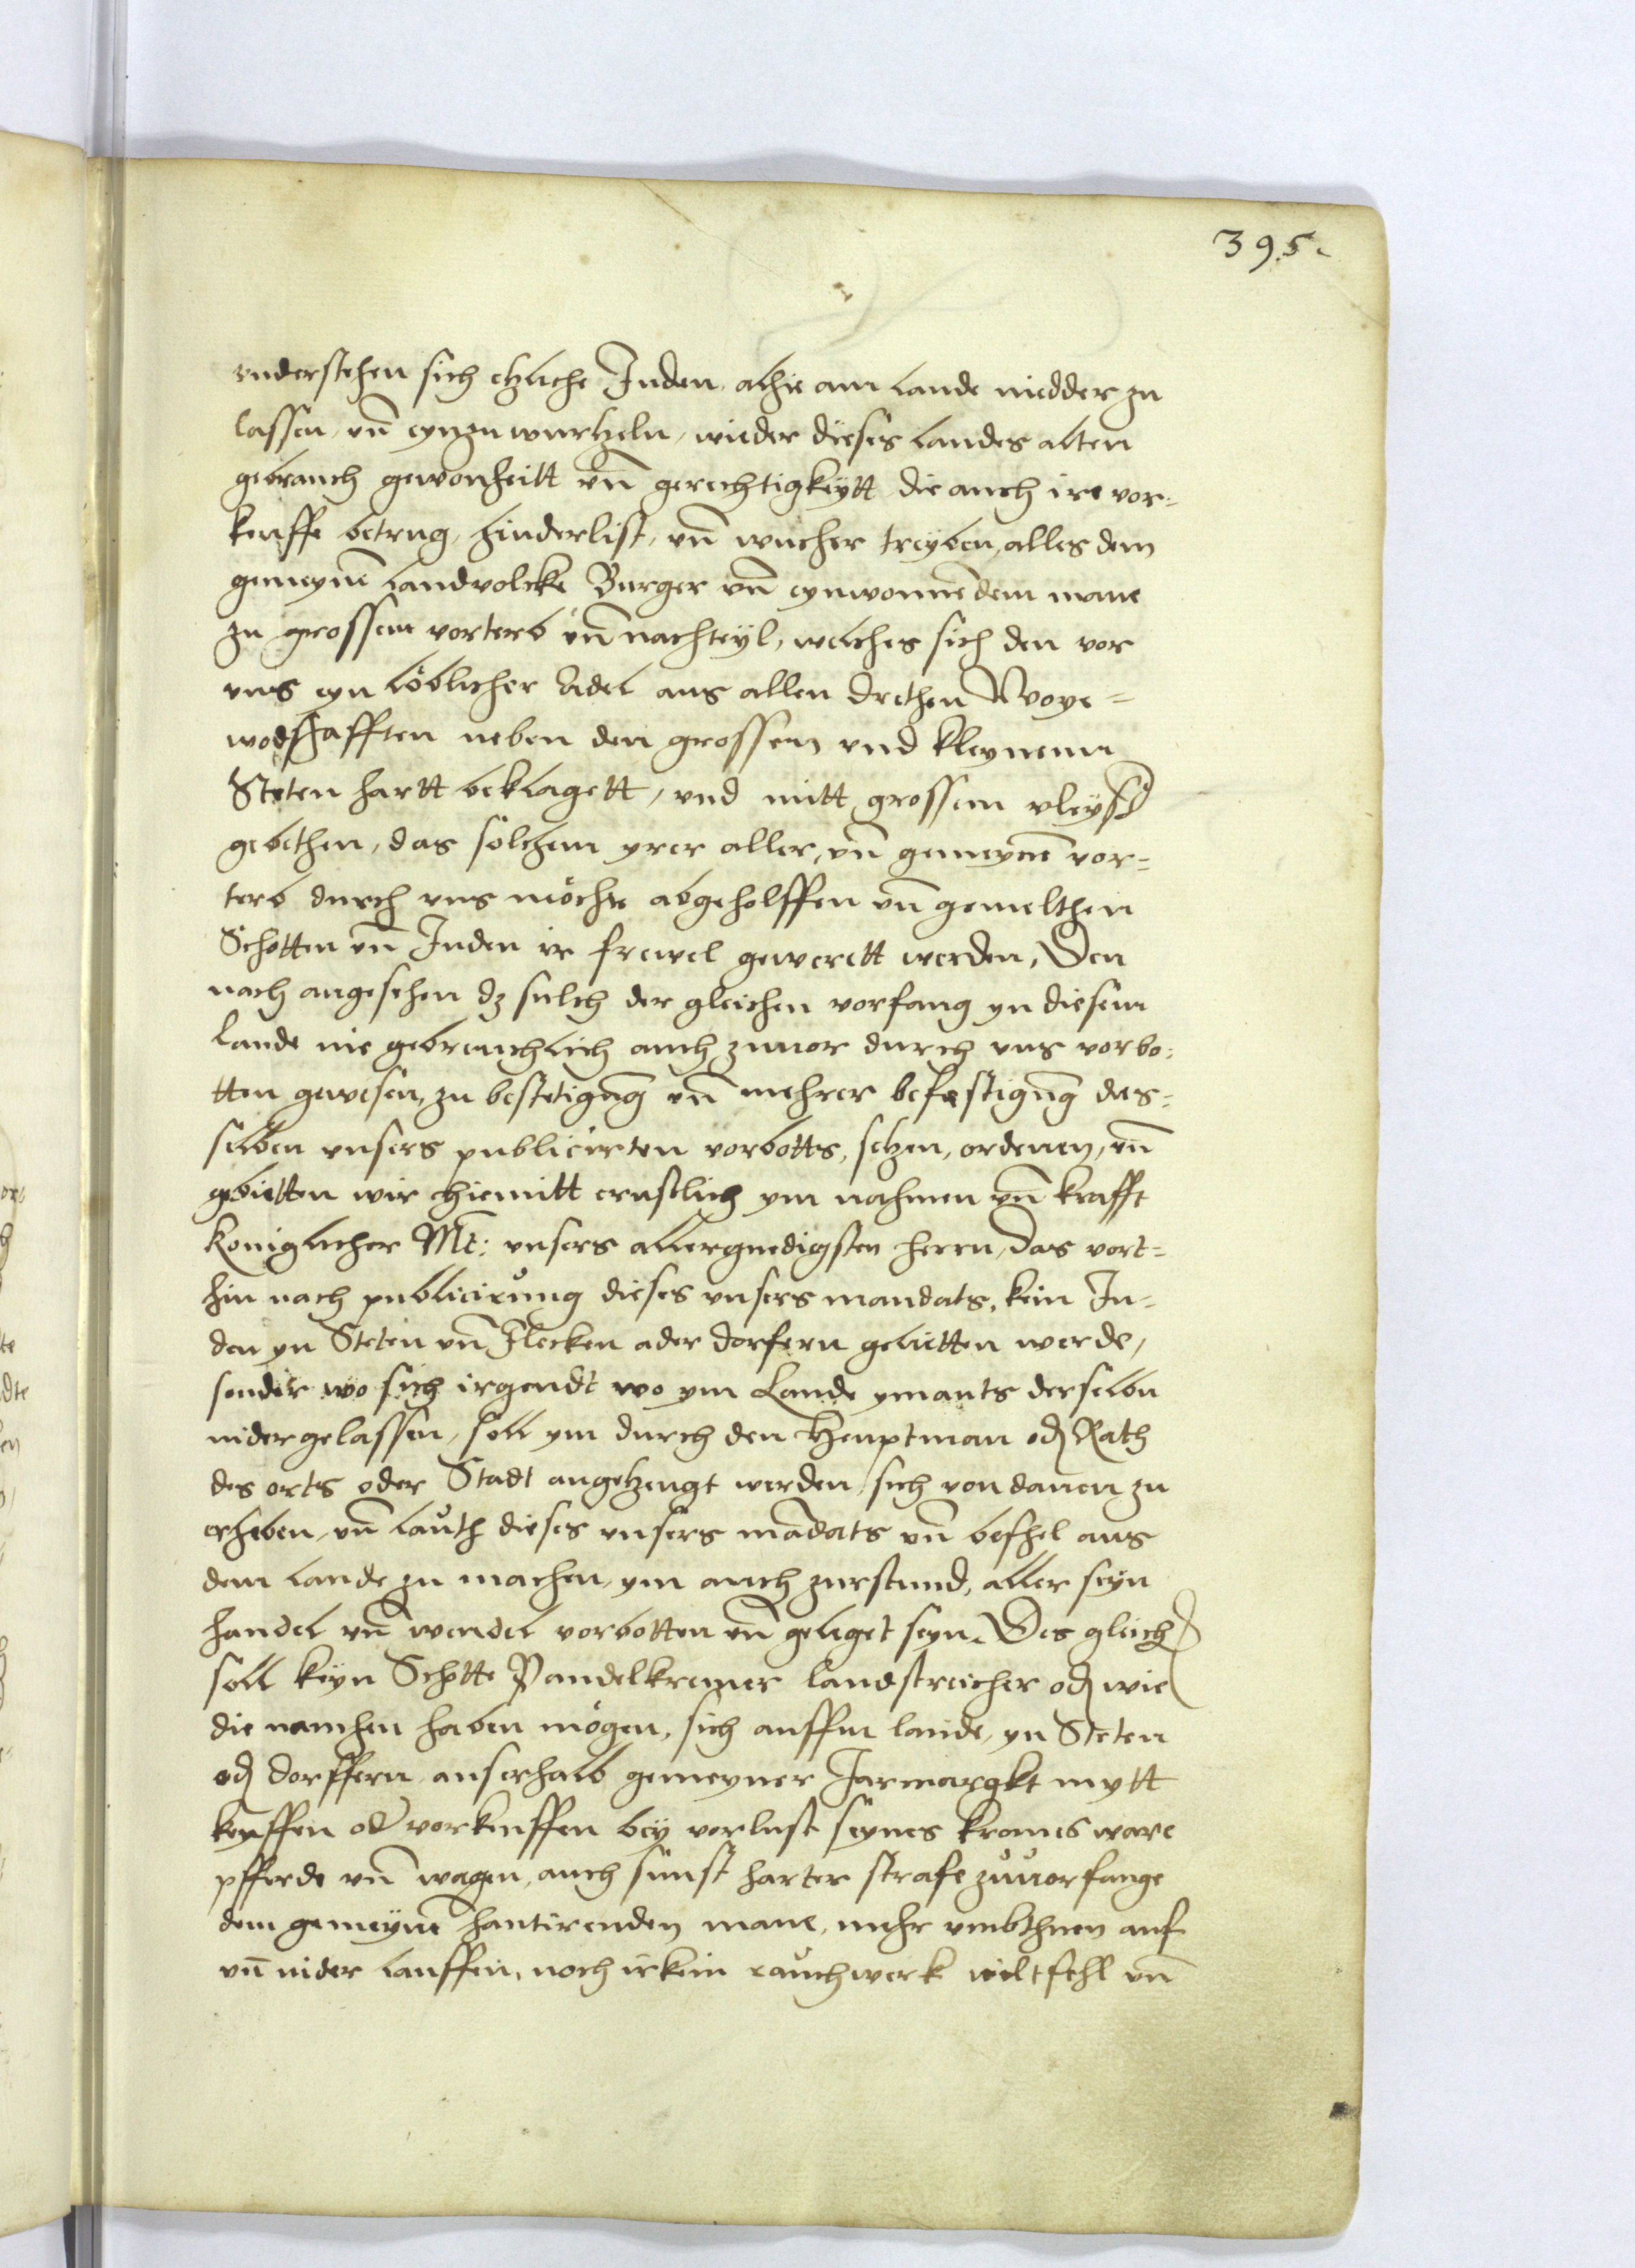 395.
vnderstehen sich etzliche Juden alhie am lande niedder zu
lassen, vn̄ eynzuwurtzeln, wieder dieses landes alten
gebrauch gewonheitt vn̄ gerechtigkeytt die auch ire vor-
keuffe betrug, hinderlist, vn̄ wucher treyben, alles dem
gemeynē landvolcke Burger vn̄ eynwonnēdem mane
zu grossem vorterb vn̄ nachteyl, welches sich den vor
vns eyn löblicher Adel aus allen drethen Woye-
wodschafften neben den grossen vnd kleynenn
Steten hartt beklagett, vnd mitt grossem vleyss
gebethen, das solchem yrer aller, vn̄ gemeynē vor-
terb durch vns möchte abgeholffen vn̄ gemelthen
Schotten vn̄ Juden ir frewel gewerett werden, Den
nach angesehen dz sulch der gleichen vorfang yn diesem
lande nie gebreuchlich auch zuuor durch vns vorbo-
tten gewesen, zu bestetigūg vn̄ mehrer befestigūg des-
selben vnsers publicirten vorbotts, setzen, ordenen, vn̄
gebietten wir hiemitt ernstlich ym nahmen vn̄ krafft
Koniglicher Mt: vnsers allergnedigsten herrn, das vort-
hin nach publicirung dieses vnsers mandats, kein Ju-
den yn Steten vn̄ Flecken ader dorfern gelitten werde,
sonder wo sich irgendt wo ym Lande ymants derselbn
nidergelassen, soll ym durch den Heuptman od Rath
des orts oder Stadt angetzeugt werden, sich von danen zu
erheben, vn̄ lauth dieses vnsers mādats vn̄ befhel aus
dem lande zu machen, ym auch zurstund, aller seyn
handel vn̄ wandel vorbotten vn̄ geleget seyn. Des gleich
soll keyn Schotte Pandelkremer landstreicher od wie
die namhen haben mögen, sich auffm lande, yn Steten
od dorffern auserhalb gemeyner Jarmargkt mytt
keuffen od vorkeuffen bey vorlust seynes kromes ware
pfferde vn̄ wagen, auch sunst harter strafe zuuorfange
dem gemeynē hantirenden mane, mehr vmbthuen auf
vn̄ nider lauffen, noch irkein rauchwerk wiltfehl vn̄